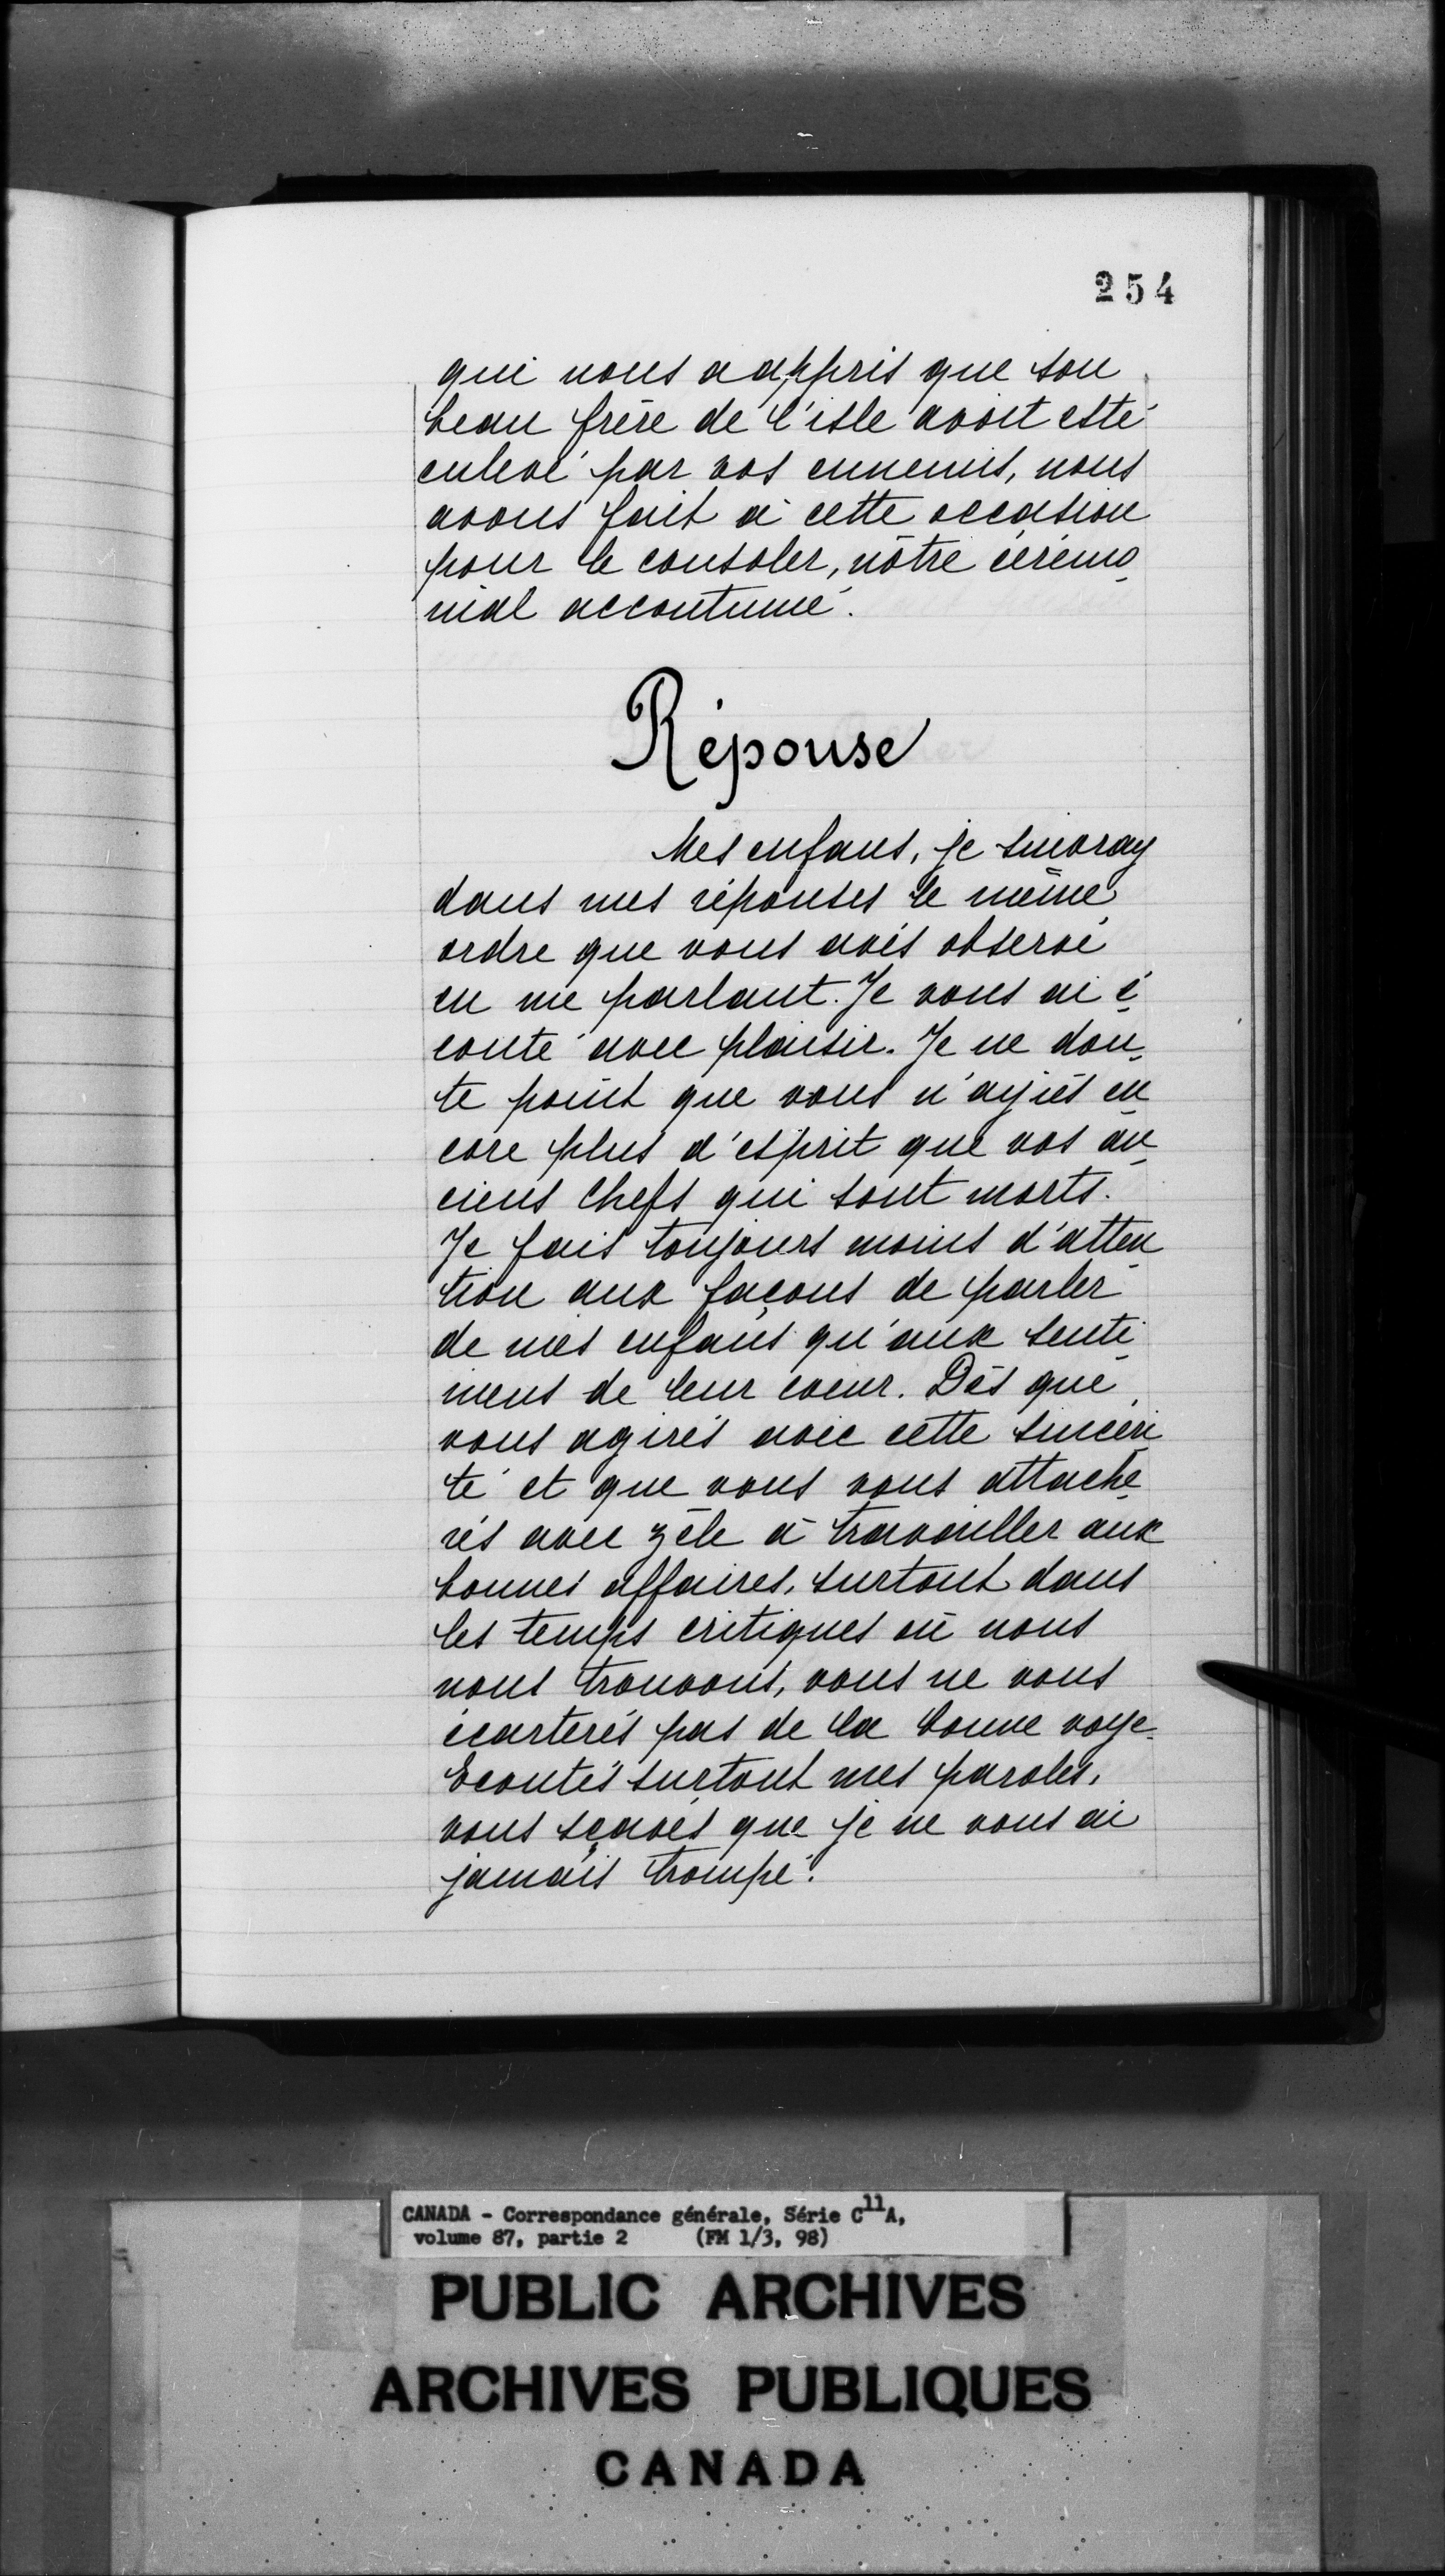 254
qui nous a appris que son
beau frère de l'isle avoit esté
enlevé par vos ennemis, nous
avons fait à cette occasion
pour le consoler, nôtre cérémo
nial accoutumé.
Réponse
Mes enfans, je suivray
dans mes réponses le même
ordre que vous avés observé
en me parlant. Je vous ai é
couté avec plaisir. Je ne dou
te point que vous n'ayiés en
core plus d'esprit que vos an
ciens chefs qui sont morts.
Je fais toujours moins d'atten
tion aux façons de parler
de mes enfans qu'aux senti
mens de leur coeur. Dès que
vous agirés avec cette sincéri
té et que vous vous attache
rés avec zèle à travailler aux
bonnes affaires, surtout dans
les temps critiques où nous
nous trouvons, vous ne vous
écarterés pas de la bonne voye.
Ecoutés surtout mes paroles,
vous sçavés que je ne vous ai
jamais trompé.
CANADA - Correspondance générale, Série C11A,
volume 87, partie 2 (FM 1/3, 98)
PUBLIC ARCHIVES
ARCHIVES PUBLIQUES
CANADA